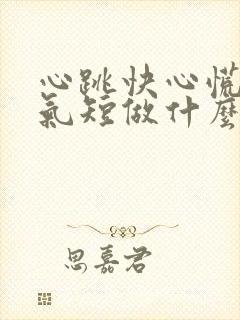 心跳快心慌
氣短做什麼
思嘉君